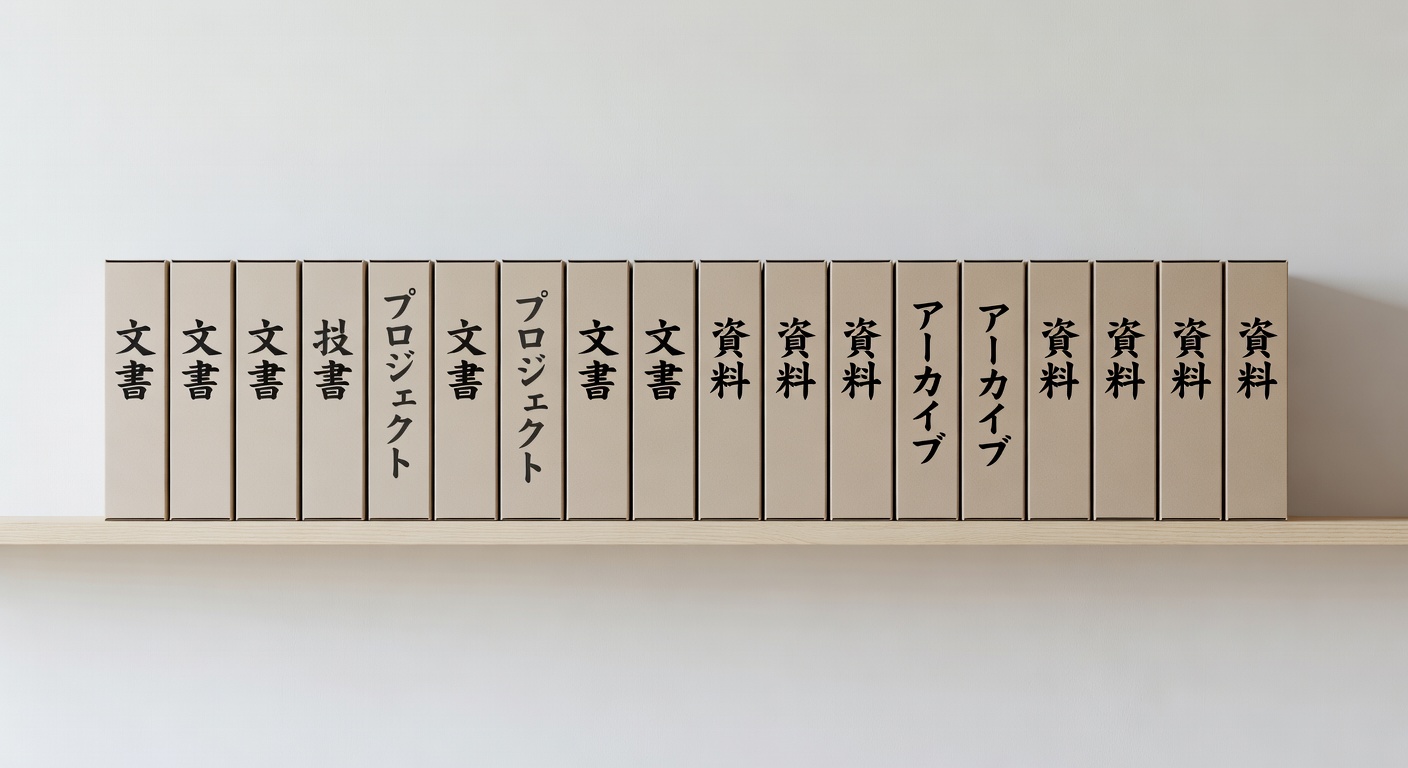 文書
文書
文書
技書
プロジェクト
文書
プロジェクト
文書
文書
資料
資料
資料
アーカイブ
アーカイブ
資料
資料
資料
資料